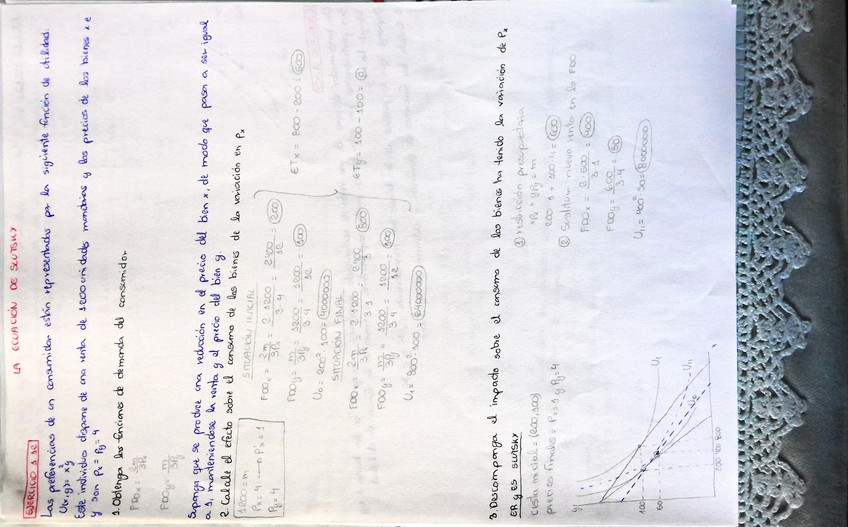 LA ECUACIÓN DE SLUTSKY
EJERCICIO 1.12
Las preferencias de un consumidor están representadas por la siguiente función de utilidad:
U(x,y) = x²y
Este individuo dispone de una renta de 1200 unidades monetarias y los precios de los bienes x e
y son Px = Py = 4
1. Obtenga las funciones de demanda del consumidor
FDOx = 2m/3Px
FDOy = m/3Py
Suponga que se produce una reducción en el precio del bien x, de modo que pasa a ser igual
a 1, manteniéndose la renta y el precio del bien y.
2. Calcule el efecto sobre el consumo de los bienes de la variación en Px
1200 = m
Px = 4 → P'x = 1
Py = 4
SITUACIÓN INICIAL
FDOx = 2m/3Px = 2·1200/3·4 = 2400/12 = 200
FDOy = m/3Py = 1200/3·4 = 1200/12 = 100
U0 = 200²·100 = 4000000
SITUACIÓN FINAL
FDOx = 2m/3Px = 2·1200/3·1 = 2400/3 = 800
FDOy = m/3Py = 1200/3·4 = 1200/12 = 100
U1 = 800²·100 = 64000000
ETx = 800 - 200 = 600
ETy = 100 - 100 = 0
3. Descomponga el impacto sobre el consumo de los bienes que ha tenido la variación de Px
ER y ES SLUTSKY
Cesta inicial = (200,100)
precios finales = Px = 1 y Py = 4
① restricción presupuestaria
xPx + yPy = m
200·1 + 100·4 = 600
② Sustituir nueva renta en la FDO
FDOx = 2·600/3·1 = 400
FDOy = 600/3·4 = 50
U11 = 400²·50 = 8000000
y
100
50
U1
U11
U0
200 400 800